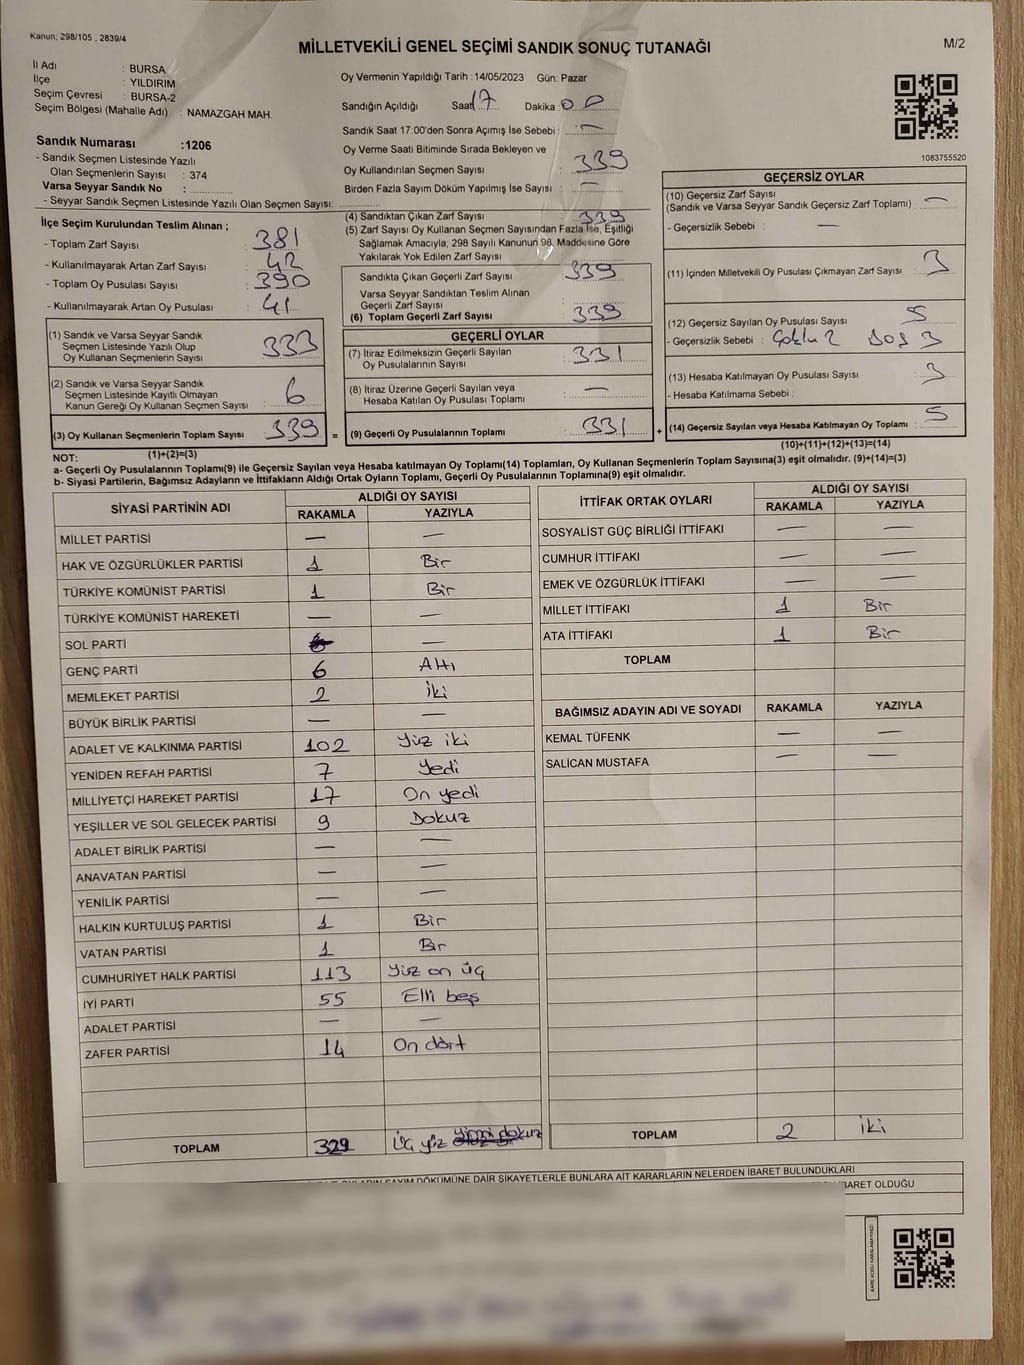 Kanun: 298/105 , 2839/4
MİLLETVEKİLİ GENEL SEÇİMİ SANDIK SONUÇ TUTANAĞI
M/2
İl Adı : BURSA
İlçe : YILDIRIM
Seçim Çevresi : BURSA-2
Seçim Bölgesi (Mahalle Adı) : NAMAZGAH MAH.
Sandık Numarası :1206
- Sandık Seçmen Listesinde Yazılı
Olan Seçmenlerin Sayısı : 374
Varsa Seyyar Sandık No :
- Seyyar Sandık Seçmen Listesinde Yazılı Olan Seçmen Sayısı:
Oy Vermenin Yapıldığı Tarih :14/05/2023 Gün: Pazar
Sandığın Açıldığı Saat 17 Dakika : 00
Sandık Saat 17:00'den Sonra Açımış İse Sebebi : —
Oy Verme Saati Bitiminde Sırada Bekleyen ve
Oy Kullandırılan Seçmen Sayısı : 339
Birden Fazla Sayım Döküm Yapılmış İse Sayısı : —
1083755520
İlçe Seçim Kurulundan Teslim Alınan ;
- Toplam Zarf Sayısı : 381
- Kullanılmayarak Artan Zarf Sayısı : 42
- Toplam Oy Pusulası Sayısı : 390
- Kullanılmayarak Artan Oy Pusulası : 41
(1) Sandık ve Varsa Seyyar Sandık
Seçmen Listesinde Yazılı Olup
Oy Kullanan Seçmenlerin Sayısı : 333
(2) Sandık ve Varsa Seyyar Sandık
Seçmen Listesinde Kayıtlı Olmayan
Kanun Gereği Oy Kullanan Seçmen Sayısı : 6
(3) Oy Kullanan Seçmenlerin Toplam Sayısı : 339
(1)+(2)=(3)
(4) Sandıktan Çıkan Zarf Sayısı : 339
(5) Zarf Sayısı Oy Kullanan Seçmen Sayısından Fazla İse, Eşitliği
Sağlamak Amacıyla, 298 Sayılı Kanunun 98. Maddesine Göre
Yakılarak Yok Edilen Zarf Sayısı :
Sandıkta Çıkan Geçerli Zarf Sayısı : 339
Varsa Seyyar Sandıktan Teslim Alınan
Geçerli Zarf Sayısı :
(6) Toplam Geçerli Zarf Sayısı : 339
GEÇERLİ OYLAR
(7) İtiraz Edilmeksizin Geçerli Sayılan
Oy Pusulalarının Sayısı : 331
(8) İtiraz Üzerine Geçerli Sayılan veya
Hesaba Katılan Oy Pusulası Toplamı : —
= (9) Geçerli Oy Pusulalarının Toplamı : 331
GEÇERSİZ OYLAR
(10) Geçersiz Zarf Sayısı
(Sandık ve Varsa Seyyar Sandık Geçersiz Zarf Toplamı) : —
- Geçersizlik Sebebi : —
(11) İçinden Milletvekili Oy Pusulası Çıkmayan Zarf Sayısı : 3
(12) Geçersiz Sayılan Oy Pusulası Sayısı : 5
- Geçersizlik Sebebi : Çoklu 2 Boş 3
(13) Hesaba Katılmayan Oy Pusulası Sayısı : 3
- Hesaba Katılmama Sebebi :
+ (14) Geçersiz Sayılan veya Hesaba Katılmayan Oy Toplamı : 5
(10)+(11)+(12)+(13)=(14)
NOT:
a- Geçerli Oy Pusulalarının Toplamı(9) ile Geçersiz Sayılan veya Hesaba katılmayan Oy Toplamı(14) Toplamları, Oy Kullanan Seçmenlerin Toplam Sayısına(3) eşit olmalıdır. (9)+(14)=(3)
b- Siyasi Partilerin, Bağımsız Adayların ve İttifakların Aldığı Ortak Oyların Toplamı, Geçerli Oy Pusulalarının Toplamına(9) eşit olmalıdır.
SİYASİ PARTİNİN ADI ALDIĞI OY SAYISI
RAKAMLA YAZIYLA
MİLLET PARTİSİ — —
HAK VE ÖZGÜRLÜKLER PARTİSİ 1 Bir
TÜRKİYE KOMÜNİST PARTİSİ 1 Bir
TÜRKİYE KOMÜNİST HAREKETİ — —
SOL PARTİ —
GENÇ PARTİ 6 Altı
MEMLEKET PARTİSİ 2 İki
BÜYÜK BİRLİK PARTİSİ — —
ADALET VE KALKINMA PARTİSİ 102 Yüz iki
YENİDEN REFAH PARTİSİ 7 Yedi
MİLLİYETÇİ HAREKET PARTİSİ 17 On yedi
YEŞİLLER VE SOL GELECEK PARTİSİ 9 Dokuz
ADALET BİRLİK PARTİSİ — —
ANAVATAN PARTİSİ — —
YENİLİK PARTİSİ — —
HALKIN KURTULUŞ PARTİSİ 1 Bir
VATAN PARTİSİ 1 Bir
CUMHURİYET HALK PARTİSİ 113 Yüz on üç
İYİ PARTİ 55 Elli beş
ADALET PARTİSİ — —
ZAFER PARTİSİ 14 On dört
TOPLAM 329 Üç yüz yirmi dokuz
İTTİFAK ORTAK OYLARI ALDIĞI OY SAYISI
RAKAMLA YAZIYLA
SOSYALİST GÜÇ BİRLİĞİ İTTİFAKI — —
CUMHUR İTTİFAKI — —
EMEK VE ÖZGÜRLÜK İTTİFAKI — —
MİLLET İTTİFAKI 1 Bir
ATA İTTİFAKI 1 Bir
TOPLAM
BAĞIMSIZ ADAYIN ADI VE SOYADI RAKAMLA YAZIYLA
KEMAL TÜFENK — —
SALİCAN MUSTAFA — —
TOPLAM 2 İki
DÖKÜMÜNE DAİR ŞİKAYETLERLE BUNLARA AİT KARARLARIN NELERDEN İBARET BULUNDUKLARI
İBARET OLDUĞU